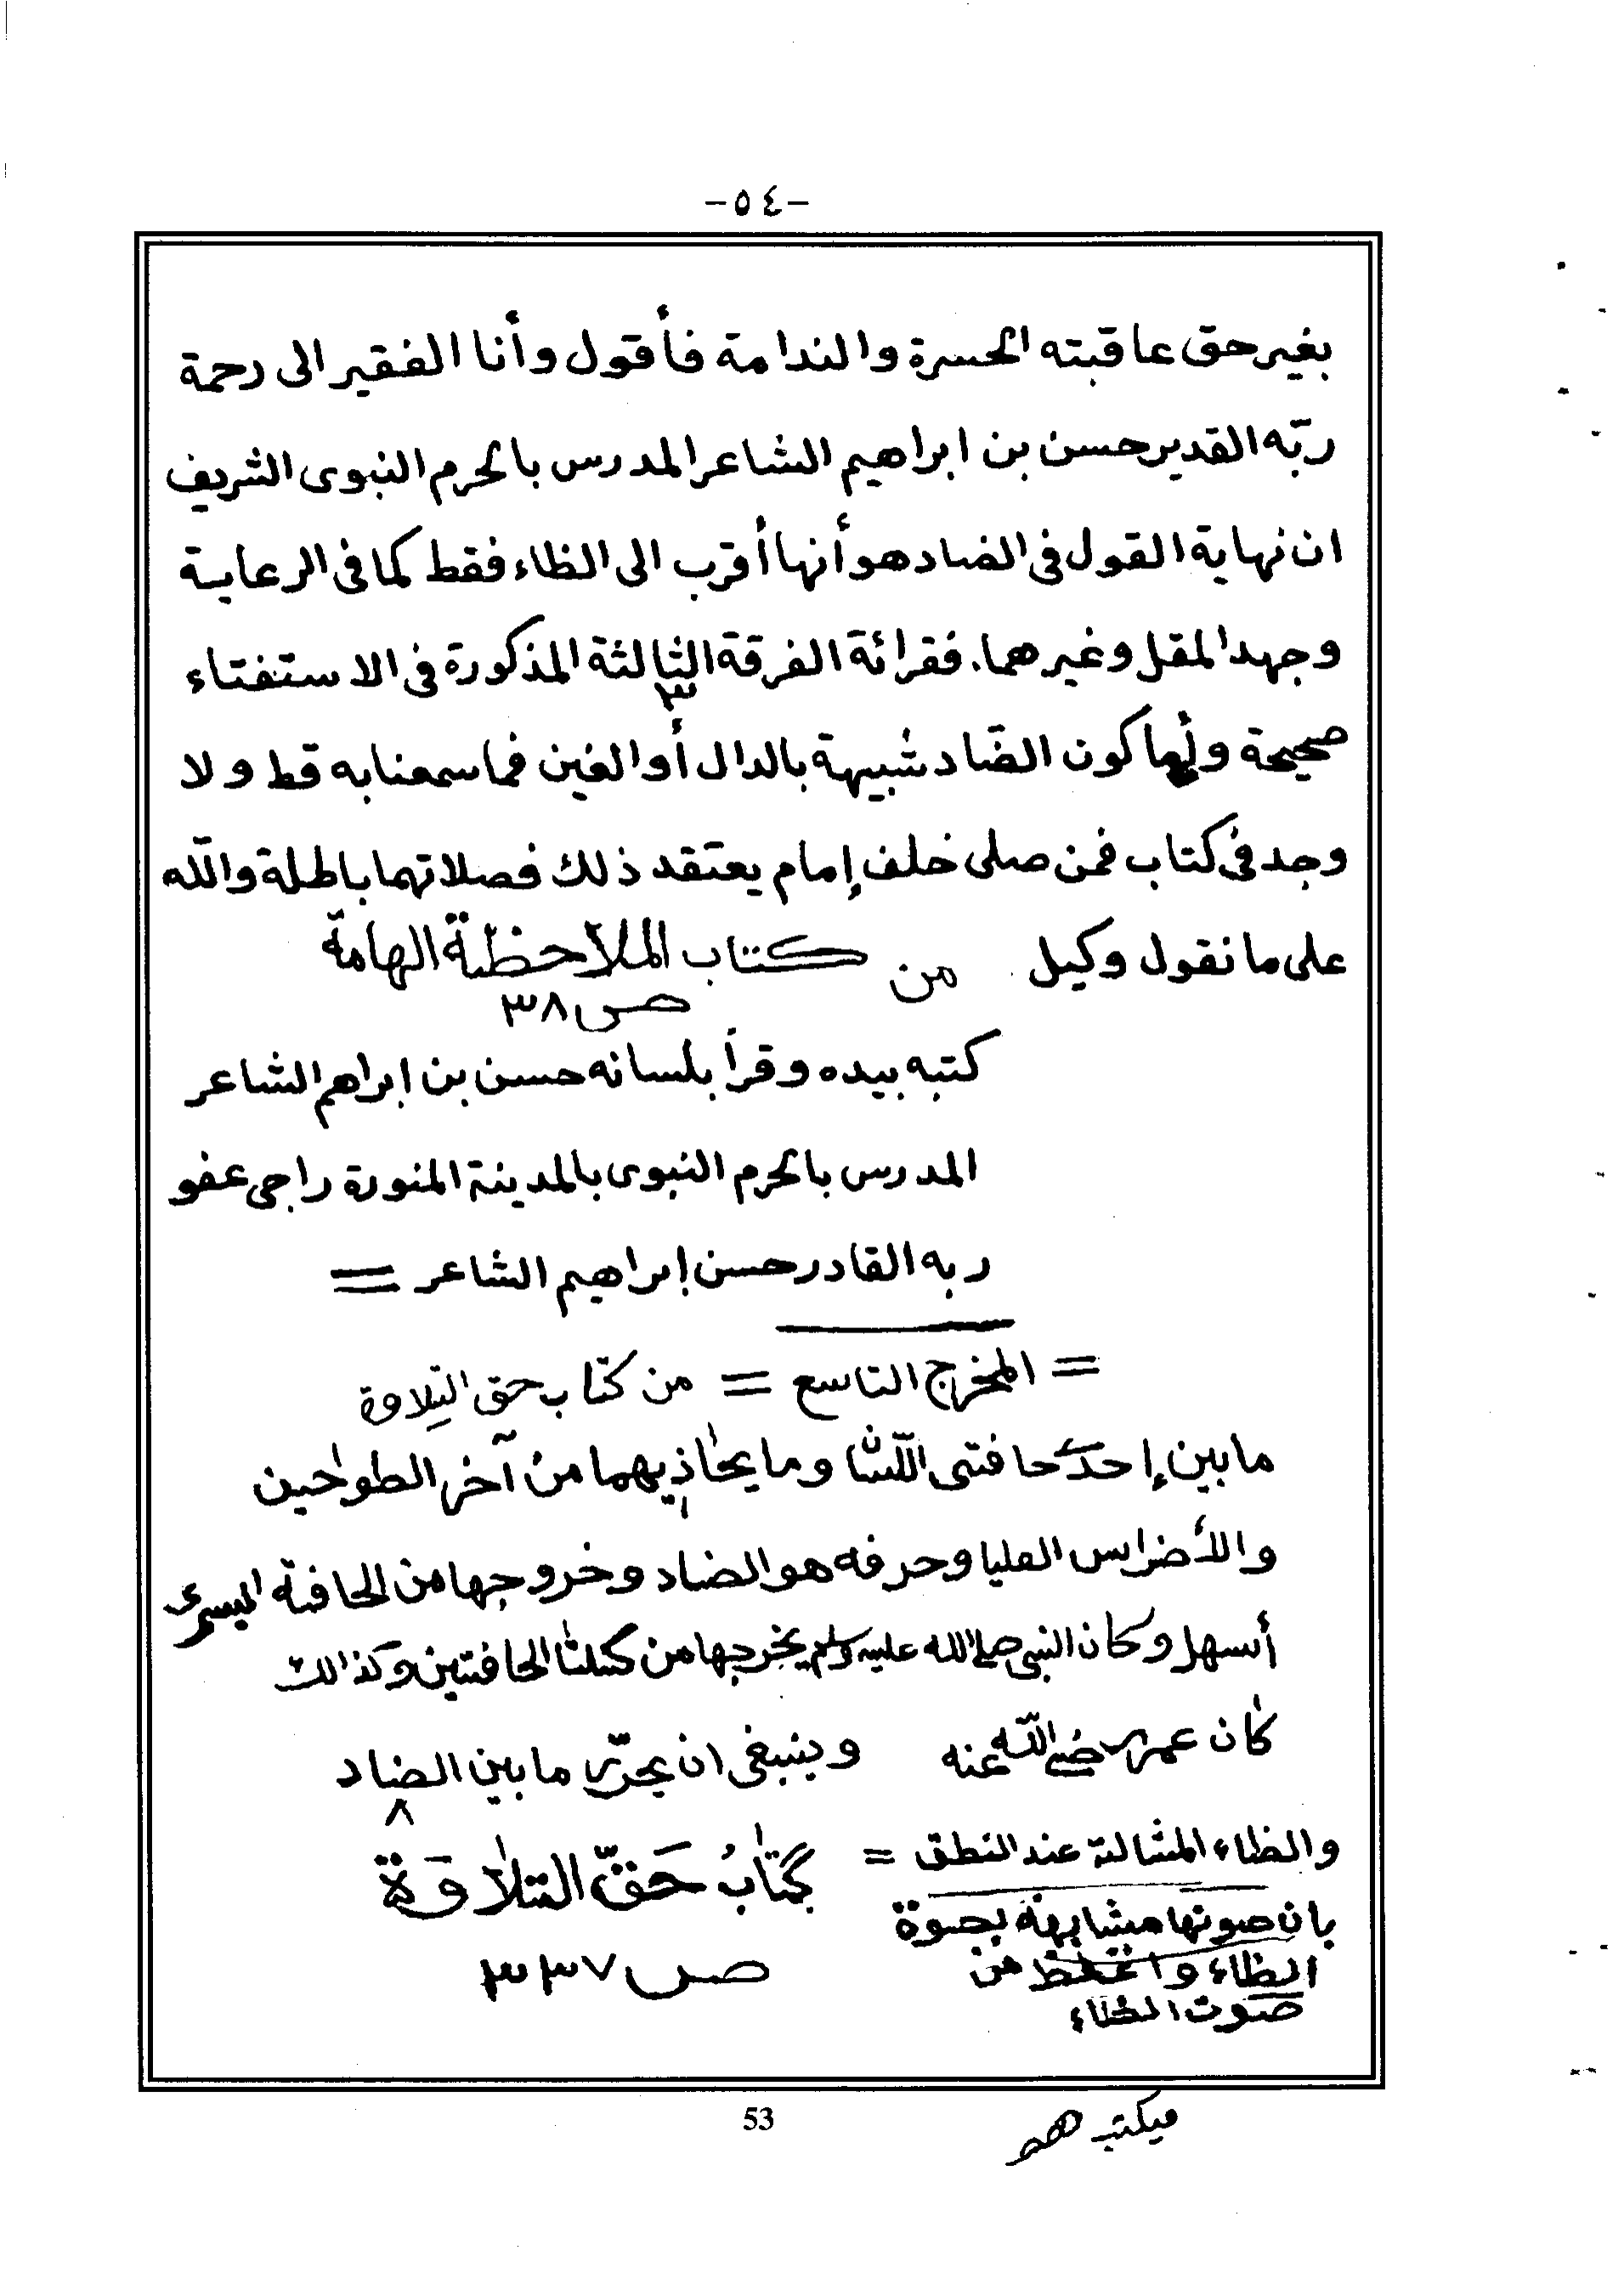 -٥٤-
بغير حق عاقبته الحسرة والندامة فأقول وأنا الفقير الى رحمة
ربّه القدير حسن بن ابراهيم الشاعر المدرس بالحرم النبوى الشريف
ان نهاية القول فى الضاد هو أنها أقرب الى الظاء فقط كما فى الرعاية
وجهد المقل وغيرهما. فقرائة الفرقة الثالثة المذكورة فى الاستفتاء
٣
صحيحة وأما كون الضّاد شبيهة بالدال أو الغين فما سمعنا به قط ولا
وجد فى كتاب فمن صلى خلف إمام يعتقد ذلك فصلاتهما باطلة والله
على ما نقول وكيل من كتاب الملاحظة الهامة
ص ٣٨
كتبه بيده وقرأ بلسانه حسن بن ابراهم الشاعر
المدرس بالحرم النبوى بالمدينة المنورة راجى عفو
ربه القادر حسن إبراهيم الشاعر =
= المخرج التاسع = من كتاب حق التِلاوة
ما بين إحدى حافتى اللّسان وما يحاذيهما من آخر الطواحين
والأضراس العليا وحرفه هو الضاد وخروجها من الحافة اليسرى
أسهل وكان النبى صلى الله عليه وسلم يخرجها من كلتا الحافتين وكذالك
كان عمر رضى الله عنه وينبغى ان يحرّر ما بين الضاد
٨
والظاء المشالة عند النطق = كتابُ حَقّ التلاوَة
بان صوتها مشابهة بصوة
الظاء و من ص ٣٣٧
صوت الظاء
53